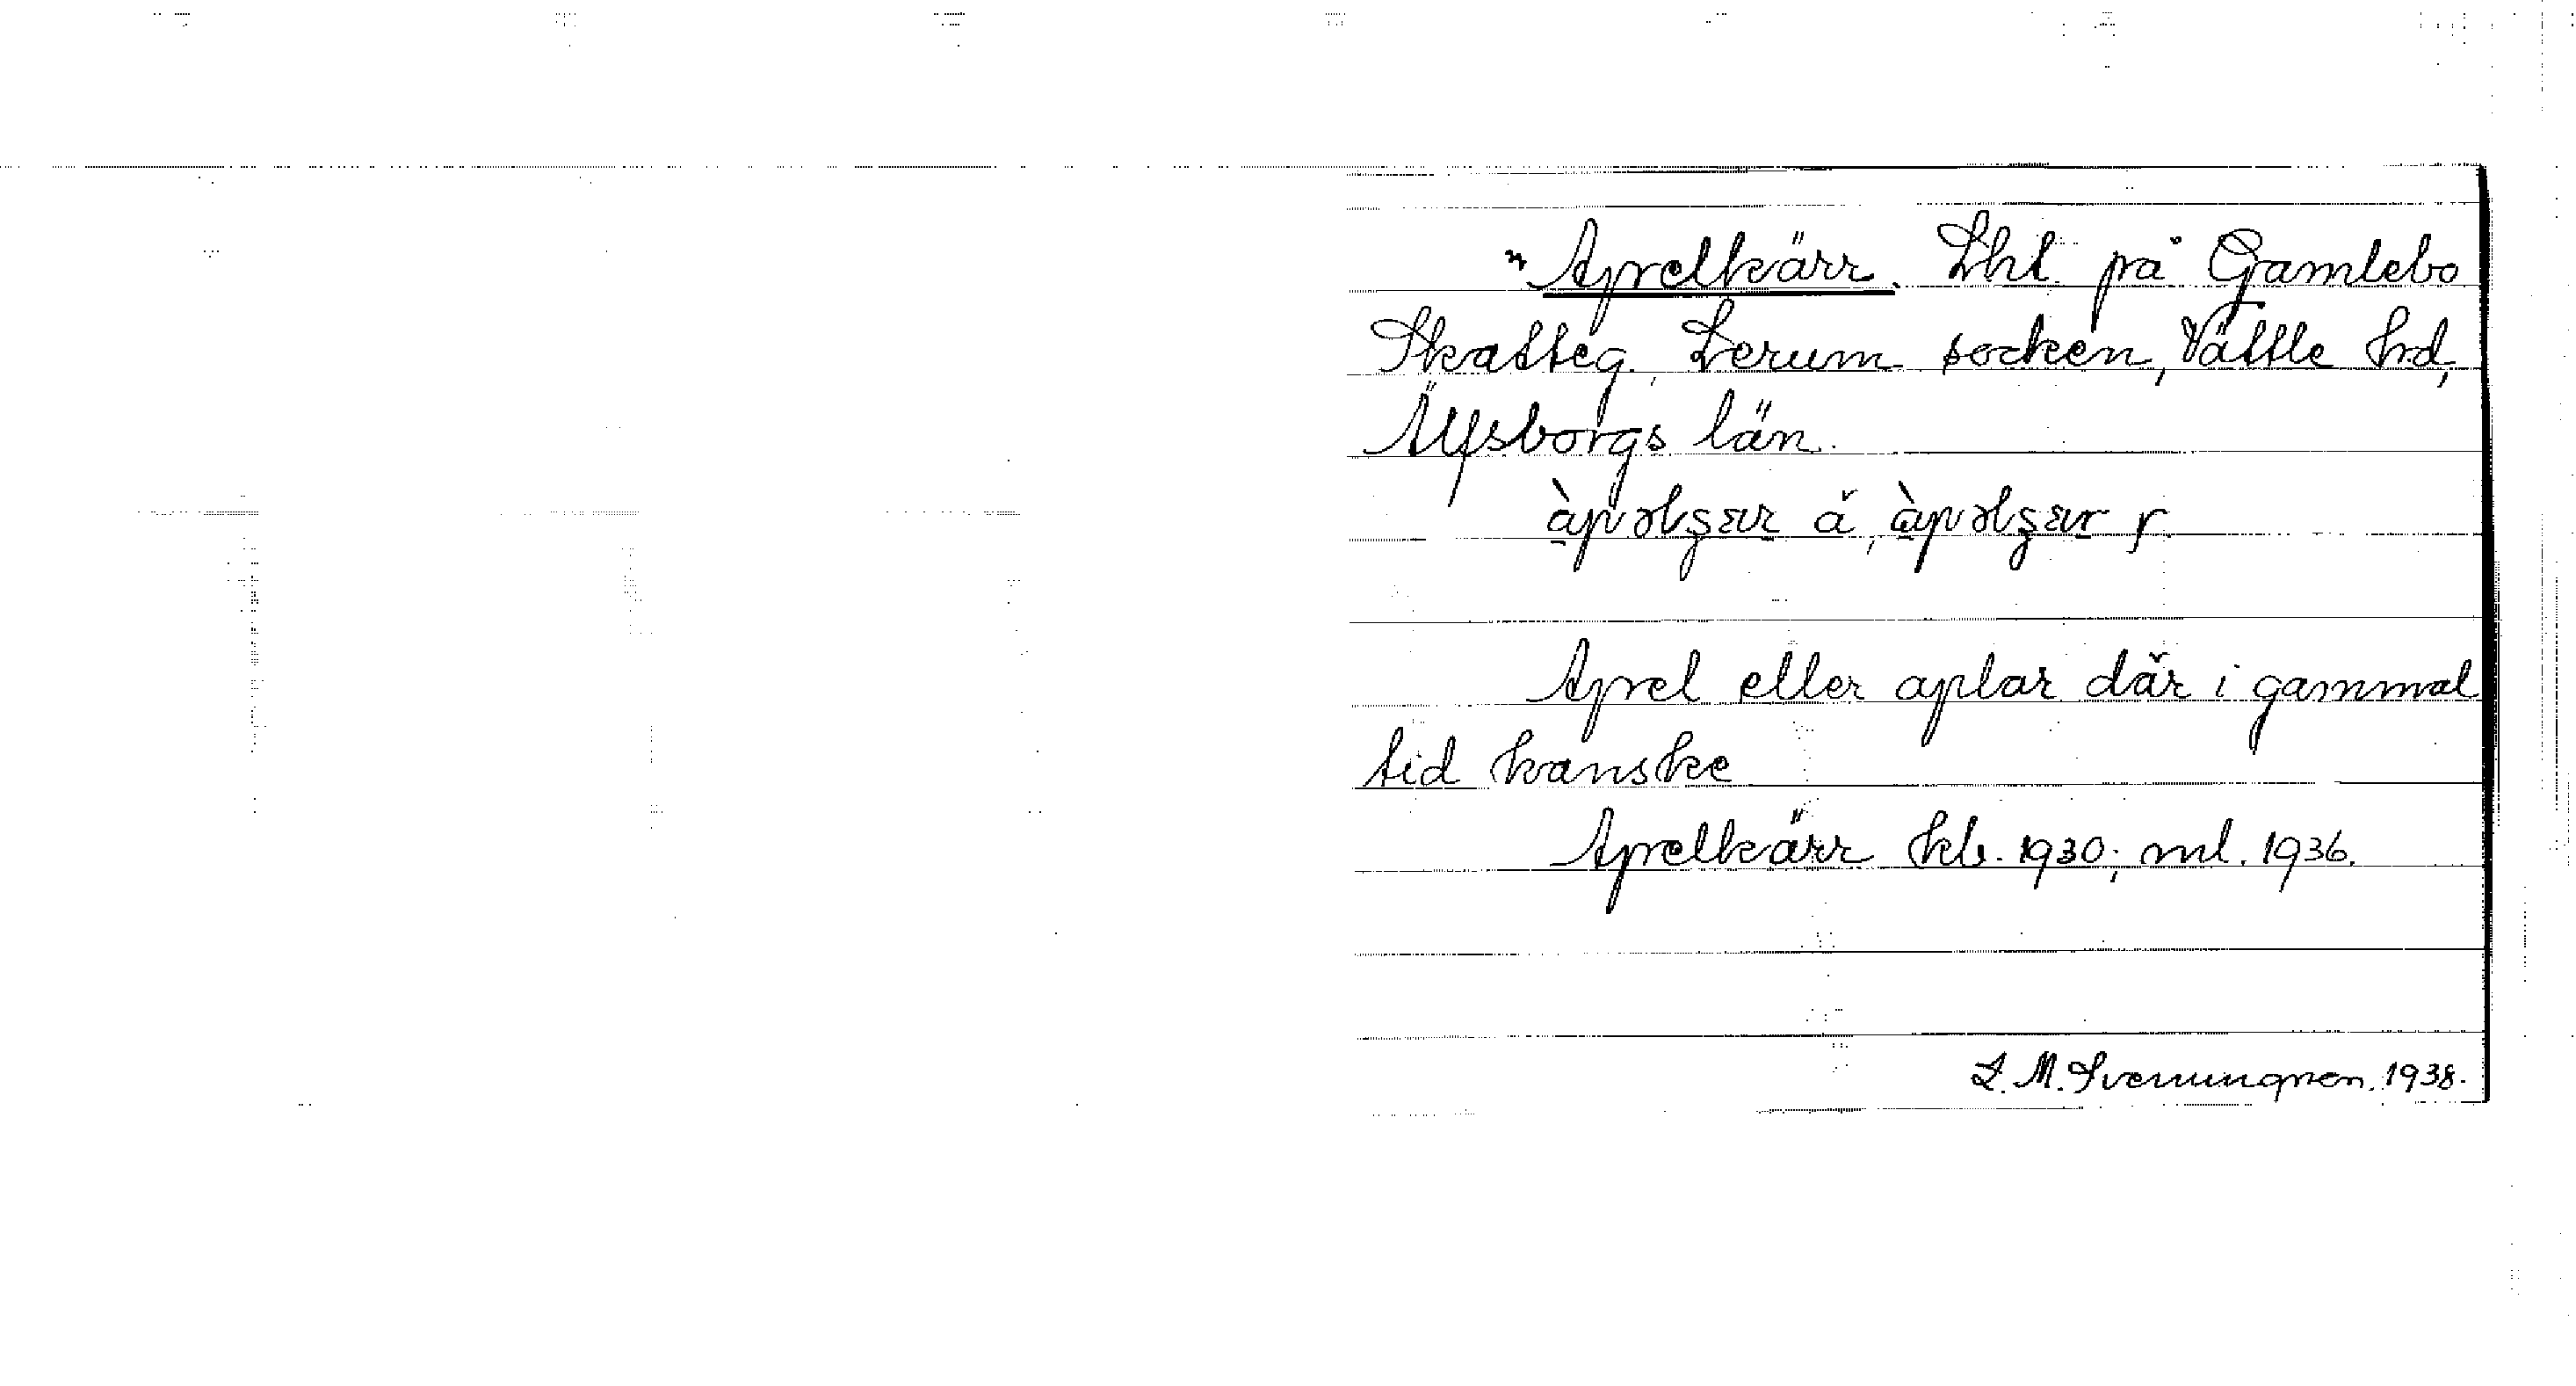 Apelkärr. Lht. på Gamlebo
Skatteg., Lerum socken, Vättle hd,
Älfsborgs län.
àpəlʂær ă, àpəlʂær r.
Apel eller aplar där i gammal
tid kanske
Apelkärr kb. 1930; ml. 1936.
L. M. Svenungsson. 1938.